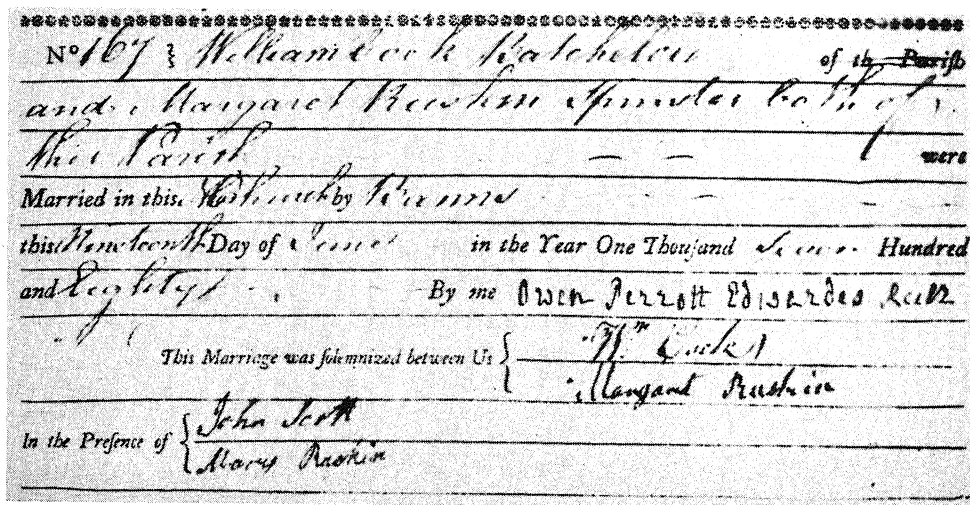 No 167 } William Cock Batchelor of the Parish
and Margaret Ruskin Spinster both of
this Parish — — were
Married in this Church by Banns
this Nineteenth Day of June in the Year One Thouſand Seven Hundred
and Eighty By me Owen Perrott Edwardes
This Marriage was ſolemnized between Us { Wm Cock
Margaret Ruskin
In the Preſence of { John Scott
Mary Ruskin